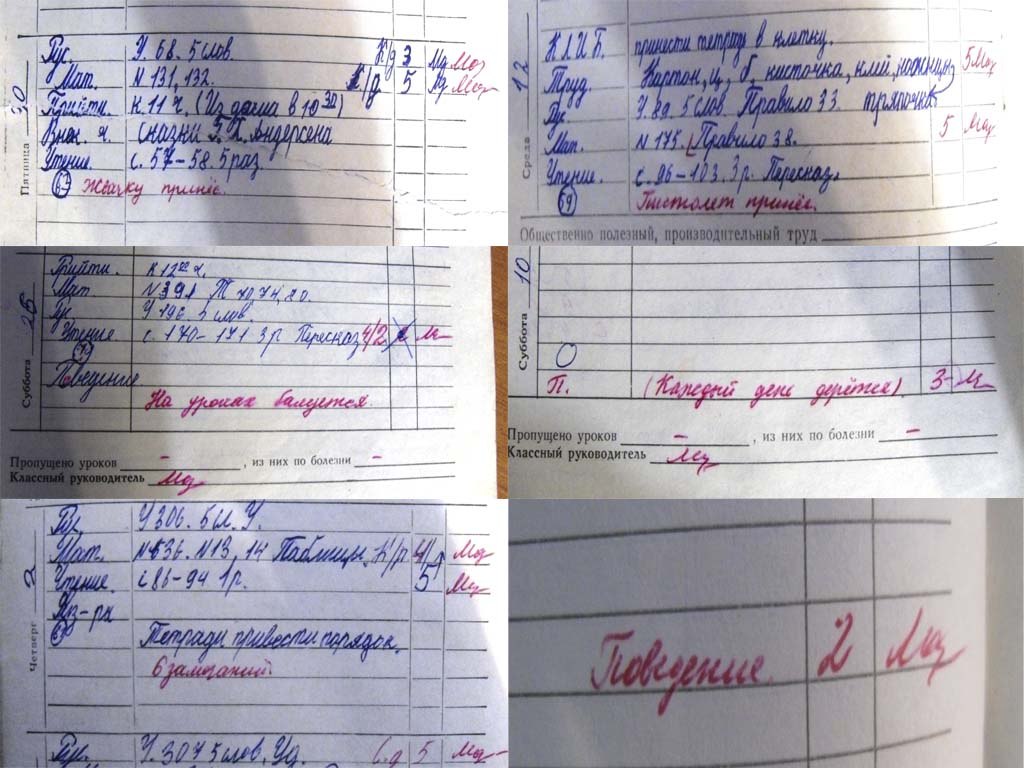 Пятница 30
Рус. У. 68. 5 слов. К/д 3
Мат. N 131, 132. К/р 5
Прийти. к 11 ч. (Из дома в 10 30)
Внек. ч. Сказки Х. Андерсена
Чтение. с. 57-58. 5 раз
Жвачку принёс.
Среда 12
К Л И Б. принести тетрадь в клетку.
Труд. Картон, ц, б, кисточка, клей, ножницы 5
тряпочка
Рус У. 89. 5 слов. Правило 33.
Мат. N 175. Правило 38. 5
Чтение. с. 96-103. 3 р. Пересказ.
69
Пистолет принёс.
Общественно полезный, производительный труд
Суббота 26
Прийти. к 12 00 ч.
Мат. N 391
Рус. У 196. 5 слов.
Чтение. с. 170-171 3 р Пересказ 4/2
Поведение
На уроках балуется.
Пропущено уроков - , из них по болезни -
Классный руководитель
Суббота 10
П. (Каждый день дерётся). 3-
Пропущено уроков - , из них по болезни -
Классный руководитель
Четверг 2
Рус. У 306. 5 сл. У.
Мат. N 536. N 13, 14 Таблицы. К/р 4/
Чтение. с 86-94 1 р. 5
Физ-ра
Тетради привести порядок.
6 замечаний.
Рус. У. 307 5 слов. Уд. С.д 5
Поведение 2